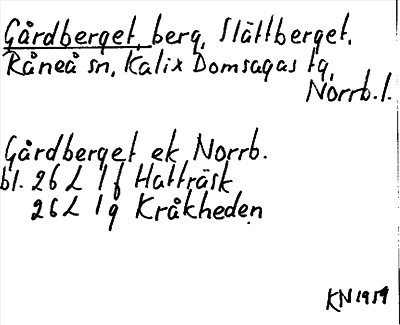 Gårdberget, berg, Slättberget,
Råneå sn, Kalix Domsagas tg,
Norrb. l.
Gårdberget ek Norrb.
bl. 26 L 1 f Hatträsk
26 L 1 g Kråkheden
KN 1959